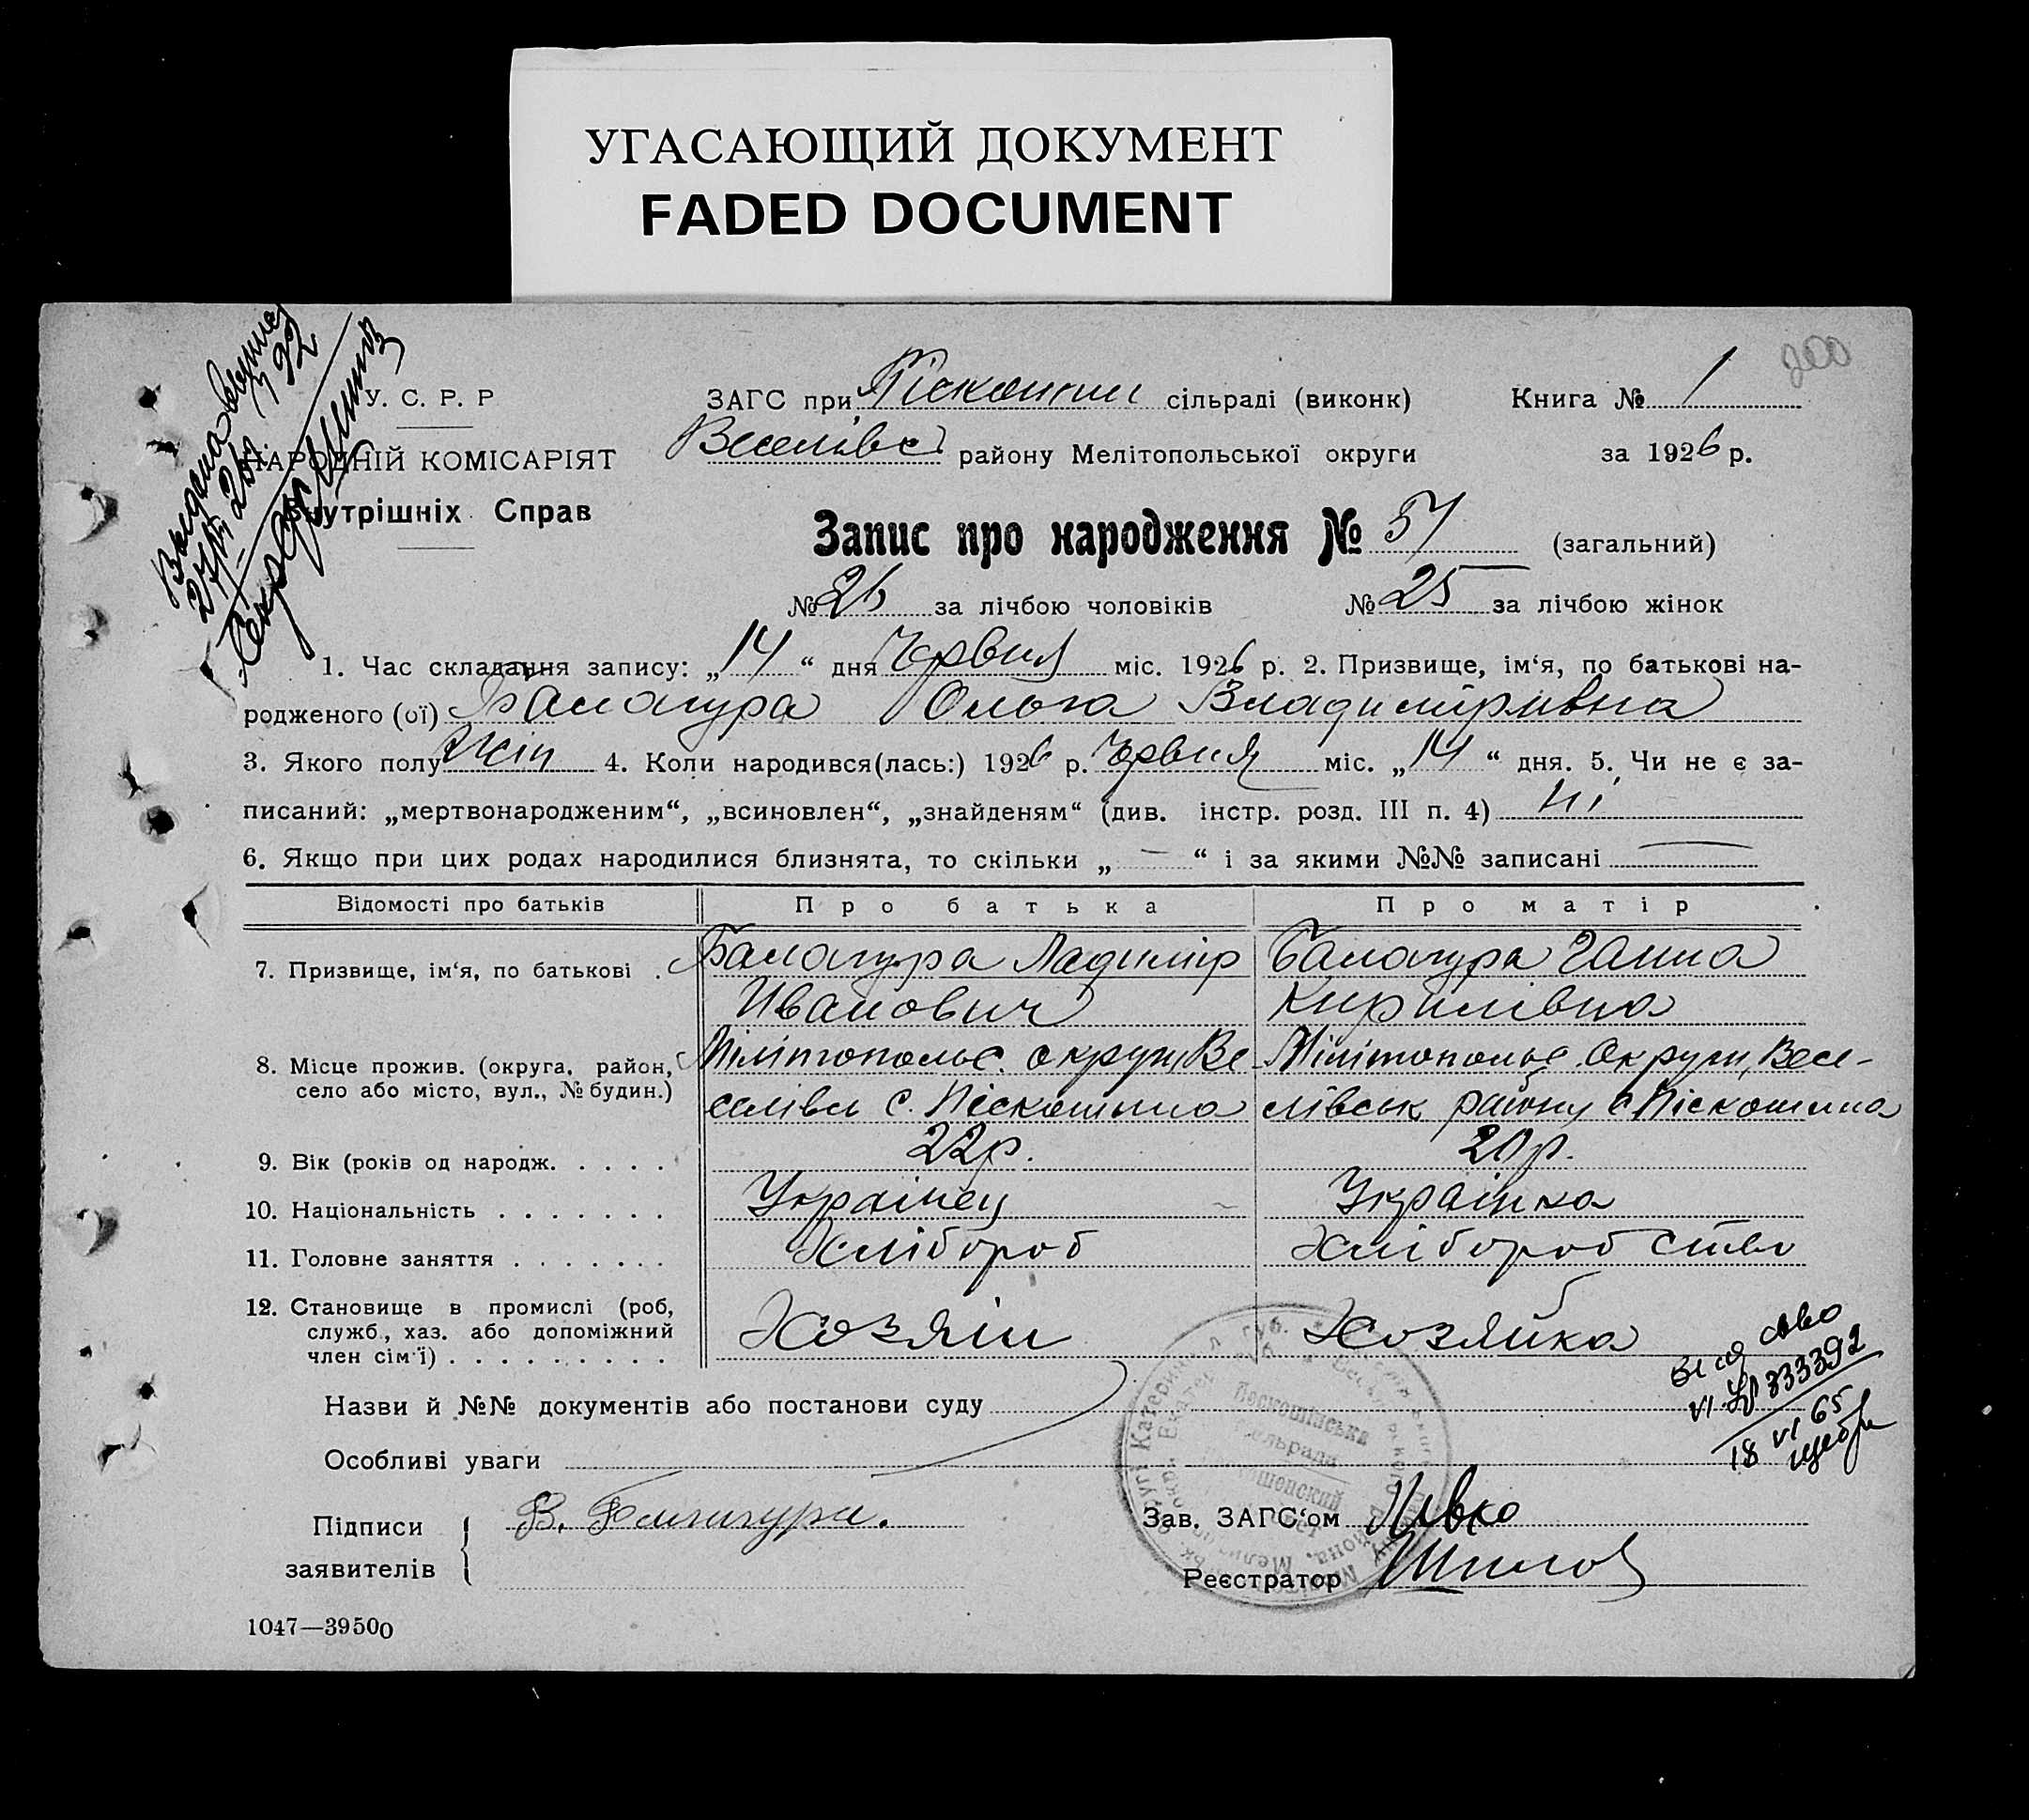 УГАСАЮЩИЙ ДОКУМЕНТ
FADED DOCUMENT
200
У. С. Р. Р
НАРОДНІЙ КОМІСАРІЯТ
Внутрішніх Справ
ЗАГС при Піскошин сільраді (виконк)
Книга № 1
Веселівс району Мелітопольської округи
за 1926 р.
Запис про народження № 51 (загальний)
№ 26 за лічбою чоловіків № 25 за лічбою жінок
1. Час складання запису: „14“ дня Червня міс. 1926 р. 2. Призвище, ім‘я, по батькові на-
родженого (ої) Балагура Ольга Владиміривна
3. Якого полу жін 4. Коли народився(лась:) 1926 р. Червня міс. „14“ дня. 5. Чи не є за-
писаний: „мертвонародженим“, „всиновлен“, „знайденям“ (див. інстр. розд. III п. 4) Ні
6. Якщо при цих родах народилися близнята, то скільки „—“ і за якими №№ записані —
Відомості про батьків Про батька Про матір
7. Призвище, ім‘я, по батькові . Балагура Ладимір Балагура Ганна
Иванович Кирилівна
8. Місце прожив. (округа, район, Мілітопольс. округи, Ве Мілітопольс. Округи, Весе-
село або місто, вул., № будин.) селівс с. Піскошино лівськ району с Піскошина
9. Вік (років од народж. . . . . 22р. 20р.
10. Національність . . . . . . . Українец Українка
11. Головне заняття . . . . . . . Хлібороб Хліборобство
12. Становище в промислі (роб, Хозяін Хозяйка
служб., хаз. або допоміжний
член сім‘ї) . . . . . . . . .
VI 333392
18 VI 65
Назви й №№ документів або постанови суду
Особливі уваги
Підписи В. Балагура.
заявителів
Зав. ЗАГС‘ом Ивко
Реєстратор
1047—39500